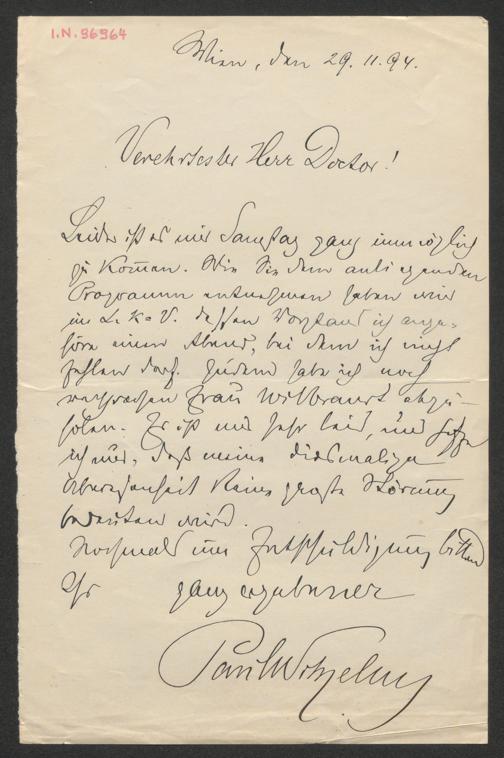 I.N. 96964
Wien, den 29.11.94.
Verehrtester Herr Doctor!
Leider ist es mir Samstag ganz unmöglich
zu kommen. Wie Sie dem anliegenden
Programm entnehmen haben wir
im L. K. V. dessen Vorstand ich ange-
höre einen Abend, bei dem ich nicht
fehlen darf. Zudem habe ich noch
versprochen Frau Wilbrandt abzu-
holen. Es ist mir sehr leid, und hoffe
ich nur, daß meine diesmalige
Abwesenheit keine große Störung
bedeuten wird.
Nochmals um Entschuldigung bittend
Ihr ganz ergebener
Paul